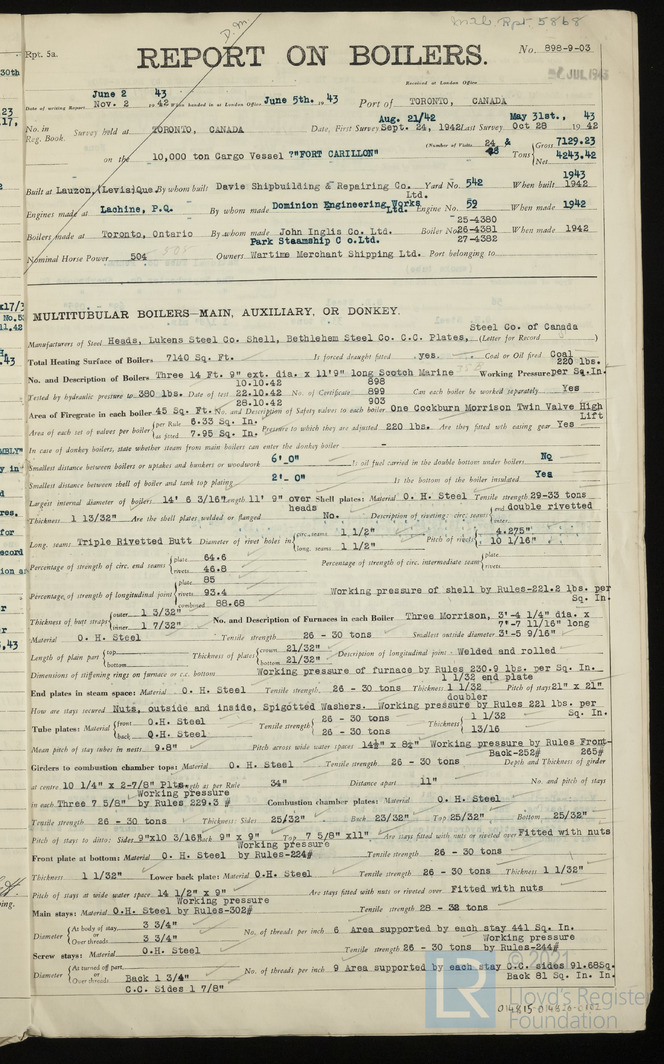 m.a.b. Rpt. 5868
Rpt. 5a.
D.M.
REPORT ON BOILERS.
No. 898-9-03
Received at London Office
JUL 1943
June 2 43
Date of writing Report Nov. 2 19 42 When handed in at London Office June 5th. 19 43 Port of TORONTO, CANADA
Aug. 21/42 May 31st., 43
No. in Reg. Book. Survey held at TORONTO, CANADA Date, First Survey Sept. 24, 1942 Last Survey Oct 28 19 42
(Number of Visits 24 &
on the 10,000 ton Cargo Vessel ?"FORT CARILLON" Tons { Gross 7129.23 Net 4243.42
1943
Built at Lauzon, (Levis) Que. By whom built Davie Shipbuilding & Repairing Co. Ltd. Yard No. 542 When built 1942
Engines made at Lachine, P.Q. By whom made Dominion Engineering Works Ltd. Engine No. 59 When made 1942
25-4380
Boilers made at Toronto, Ontario By whom made John Inglis Co. Ltd. Boiler No. 26-4381 When made 1942
Park Steamship C o.Ltd. 27-4382
Nominal Horse Power 504 Owners Wartime Merchant Shipping Ltd. Port belonging to
MULTITUBULAR BOILERS—MAIN, AUXILIARY, OR DONKEY.
Steel Co. of Canada
Manufacturers of Steel Heads, Lukens Steel Co. Shell, Bethlehem Steel Co. C.C. Plates, (Letter for Record )
Total Heating Surface of Boilers 7140 Sq. Ft. Is forced draught fitted yes. Coal or Oil fired Coal
220 lbs.
No. and Description of Boilers Three 14 Ft. 9" ext. dia. x 11'9" long Scotch Marine Working Pressure per Sq.In.
10.10.42 898
Tested by hydraulic pressure to 380 lbs. Date of test 22.10.42 No. of Certificate 899 Can each boiler be worked separately Yes
28.10.42 903
Area of Firegrate in each boiler 45 Sq. Ft. No. and Description of Safety valves to each boiler One Cockburn Morrison Twin Valve High Lift
Area of each set of valves per boiler { per Rule 6.33 Sq. In. as fitted 7.95 Sq. In. Pressure to which they are adjusted 220 lbs. Are they fitted with easing gear Yes
In case of donkey boilers, state whether steam from main boilers can enter the donkey boiler -
Smallest distance between boilers or uptakes and bunkers or woodwork 6'_0" Is oil fuel carried in the double bottom under boilers No
Smallest distance between shell of boiler and tank top plating 2'- 0" Is the bottom of the boiler insulated Yes
Largest internal diameter of boilers 14' 6 3/16" Length 11' 9" over heads Shell plates: Material O. H. Steel Tensile strength 29-33 tons
Thickness 1 13/32" Are the shell plates welded or flanged No. Description of riveting: circ. seams { end double rivetted inter.
Long. seams Triple Rivetted Butt Diameter of rivet holes in { circ. seams 1 1/2" long. seams 1 1/2" Pitch of rivets { 4.275" 10 1/16"
Percentage of strength of circ. end seams { plate 64.6 rivets 46.8 Percentage of strength of circ. intermediate seam { plate rivets
Percentage of strength of longitudinal joint { plate 85 rivets 93.4 combined 88.68 Working pressure of shell by Rules-221.2 lbs. per Sq. In.
Thickness of butt straps { outer 1 3/32" inner 1 7/32" No. and Description of Furnaces in each Boiler Three Morrison, 3'-4 1/4" dia. x 7'-7 11/16" long
Material O. H. Steel Tensile strength 26 - 30 tons Smallest outside diameter 3'-5 9/16"
Length of plain part { top bottom Thickness of plates { crown 21/32" bottom 21/32" Description of longitudinal joint Welded and rolled
Dimensions of stiffening rings on furnace or c.c. bottom Working pressure of furnace by Rules 230.9 lbs. per Sq. In.
1 1/32 end plate
End plates in steam space: Material O. H. Steel Tensile strength 26 - 30 tons Thickness 1 1/32 Pitch of stays 21" x 21"
doubler
How are stays secured Nuts, outside and inside, Spigotted Washers. Working pressure by Rules 221 lbs. per Sq. In.
Tube plates: Material { front O.H. Steel back O.H. Steel Tensile strength { 26 - 30 tons 26 - 30 tons Thickness { 1 1/32 13/16
Mean pitch of stay tubes in nests 9.8" Pitch across wide water spaces 14½" x 8¼" Working pressure by Rules Front- 265# Back-252#
Girders to combustion chamber tops: Material O. H. Steel Tensile strength 26 - 30 tons Depth and Thickness of girder
at centre 10 1/4" x 2-7/8" Plts. Length as per Rule 34" Distance apart 11" No. and pitch of stays
Working pressure
in each Three 7 5/8" by Rules 229.3 # Combustion chamber plates: Material O. H. Steel
Tensile strength 26 - 30 tons Thickness: Sides 25/32" Back 23/32" Top 25/32" Bottom 25/32"
Pitch of stays to ditto: Sides 9"x10 3/16" Back 9" x 9" Top 7 5/8" x11" Are stays fitted with nuts or riveted over Fitted with nuts
Working pressure
Front plate at bottom: Material O. H. Steel by Rules-224# Tensile strength 26 - 30 tons
Thickness 1 1/32" Lower back plate: Material O.H. Steel Tensile strength 26 - 30 tons Thickness 1 1/32"
Pitch of stays at wide water space 14 1/2" x 9" Are stays fitted with nuts or riveted over Fitted with nuts
Working pressure
Main stays: Material O.H. Steel by Rules-302# Tensile strength 28 - 32 tons
Diameter { At body of stay 3 3/4" or Over threads 3 3/4" No. of threads per inch 6 Area supported by each stay 441 Sq. In.
Working pressure
Screw stays: Material O.H. Steel Tensile strength 26 - 30 tons by Rules-244#
Diameter { At turned off part or Over threads Back 1 3/4" C.C. Sides 1 7/8" No. of threads per inch 9 Area supported by each stay C.C. sides 91.68Sq. In. Back 81 Sq. In.
© 2021
LR
Lloyd's Register
Foundation